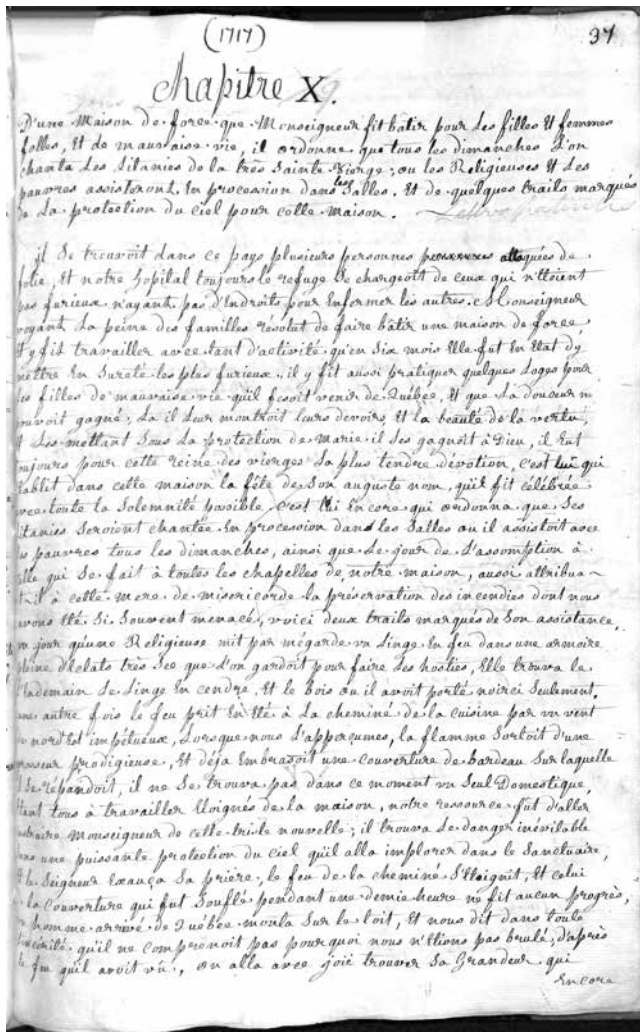 (1717)
37
Chapitre X.
D'une Maison de force que Monseigneur fit bâtir pour Les filles Et femmes
folles, Et de mauvaise vie, il ordonne que tous les dimanches L'on
chanta Les Litanies de la très Sainte Vierge, ou les Religieuses Et Les
pauvres assisteront En procession dans les Salles. Et de quelques traits marqués
de La protection du ciel pour cette maison.
il Se trouvoit dans ce pays plusieurs personnes attaquées de
folie, Et notre hopital toujours le refuge Se chargeoit de ceux qui n'étoient
pas furieux n'ayant pas d'Endroits pour Enfermer les autres. Monseigneur
voyant La peine des familles résolut de faire bâtir une maison de force,
il y fit travailler avec tant d'activité qu'en Six mois Elle fut En Etat d'y
mettre En Sureté les plus furieux, il y fit aussi pratiquer quelques Loges pour
les filles de mauvaise vie qu'il fesoit venir de Québec, Et que La douceur
pouvoit gagné; La il Leur montroit leurs devoirs, Et la beauté de la vertu,
Et Les mettant Sous La protection de marie il Les gagnoit à Dieu, il Eut
toujours pour cette reine des vierges La plus tendre dévotion, c'est lui qui
établit dans cette maison la fête de Son auguste nom, qu'il fit célébrée
avec toute la Solemnité possible, c'est lui Encore qui ordonna que Ses
Litanies Seroient chantée En procession dans les Salles ou il assistoit avec
les pauvres tous les dimanches, ainsi que Le jour de L'assomption à
celle qui Se fait à toutes les chapelles de notre maison, aussi attribua
t-il à cette mere de misericorde la préservation des incendies dont nous
avons Eté Si Souvent menacé, voici deux traits marqués de Son assistance,
un jour qu'une Religieuse mit par mégarde un Linge En feu dans une armoire
pleine d'Eclats très Sec que L'on gardoit pour faire Les hosties, Elle trouva le
L'Endemain Le Linge En cendre, Et le Bois ou il avoit porté noirci Seulement.
une autre fois le feu prit En Eté à La cheminé de la cuisine par un vent
du nord Est impétueux, Lorsque nous L'apperçumes, la flamme Sortoit d'une
grosseur prodigieuse, Et déja Embrasoit une couverture de bardeau Sur laquelle
il Se répandoit, il ne Se trouva pas dans ce moment un Seul Domestique,
étant tous à travailler Eloignés de la maison, notre ressource fut d'aller
instruire Monseigneur de cette triste nouvelle; il trouva Le danger inévitable
sans une puissante protection du ciel qu'il alla implorer dans le Sanctuaire,
Et le Seigneur Exauça Sa prière, le feu de la cheminé S'Eteignit, Et celui
de la Couverture qui fut Souflé pendant une demie heure ne fit aucun progrès,
un homme arrivé de Québec monta Sur le toit, Et nous dit dans toute
sincérité qu'il ne comprenoit pas pourquoi nous n'Etions pas brulé, d'après
le feu qu'il avoit vû, on alla avec joie trouver Sa Grandeur qui
Encore